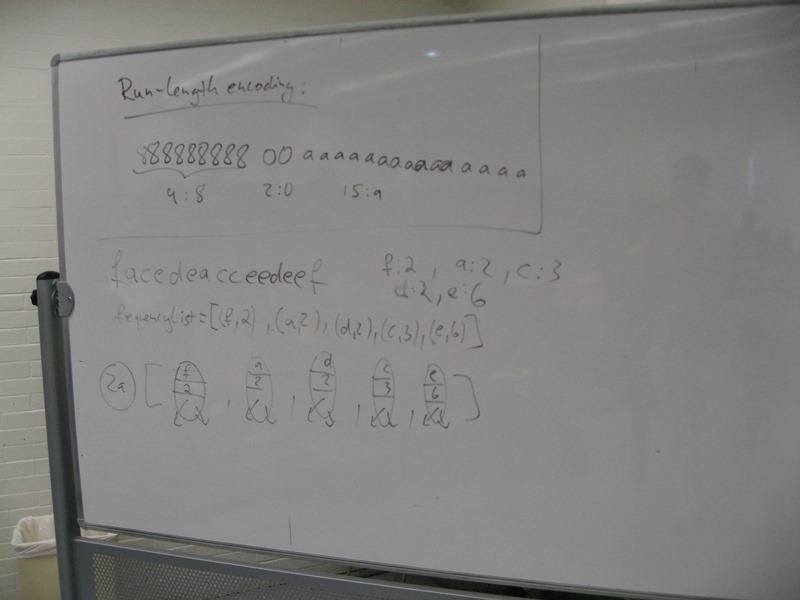 Run-length encoding:
888888888 00 aaaaaaaaaaaaaaa
9:8 2:0 15:a
facedeacceedeef f:2, a:2, c:3
d:2, e:6
frequencyList=[(f,2), (a,2), (d,2), (c,3), (e,6)]
2a [ f 2 , a 2 , d 2 , c 3 , e 6 ]